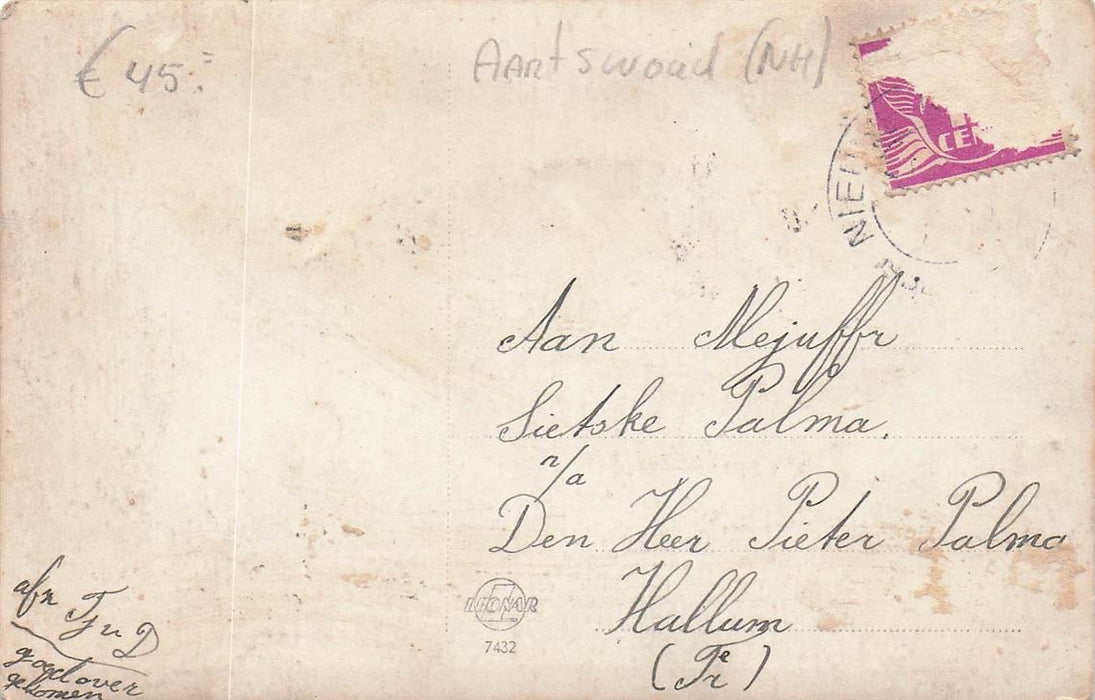 € 45.-
Aartswoud (NH)
CE
NIE
Aan Mejuffr
Sietske Palma.
n/a
Den Heer Pieter Palma
Hallum
(Fr)
LEONAR
7432
afz
goed over
gekomen